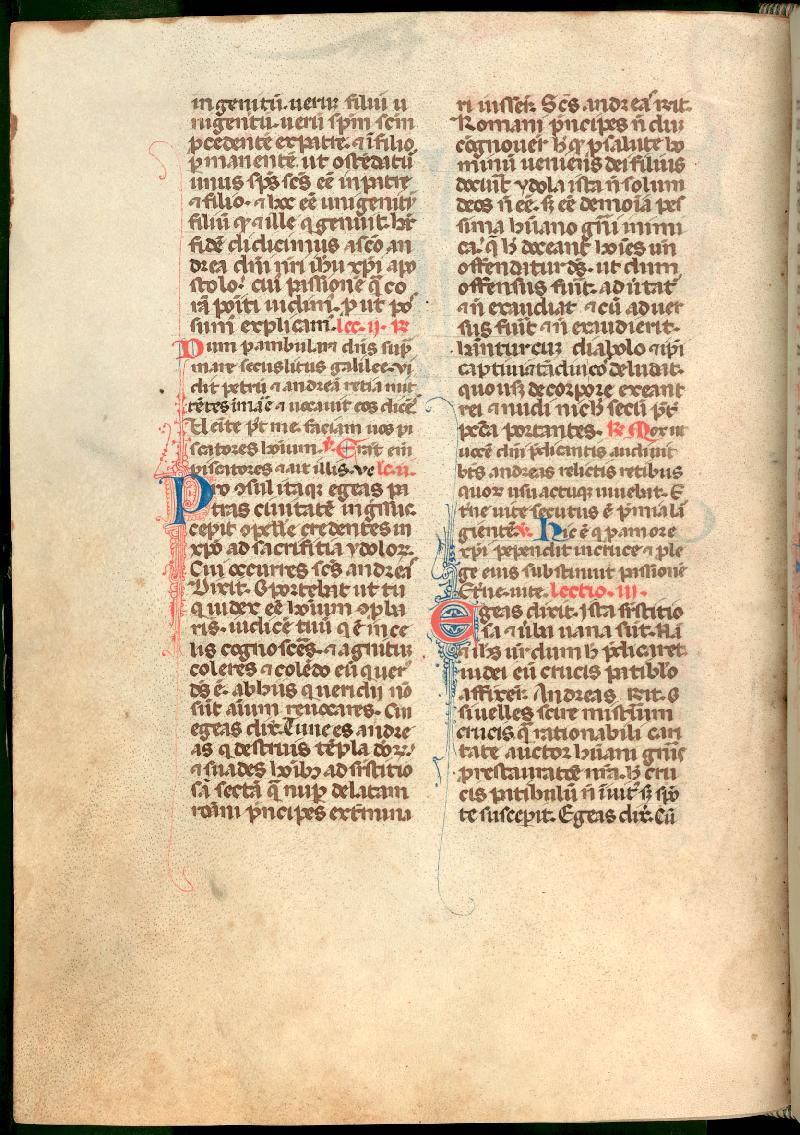 ingenitũ. verũ filiũ u
nigenitũ. verũ spm̃ scm̃
ꝓcedentẽ ex patre. ⁊ ĩ filio
ꝑmanentẽ. ut ostẽdatũ
unus sp̃s sc̃s eẽ in patre
⁊ filio. ⁊ hoc eẽ unigenitũ
filiũ qͥ ⁊ ille q̇ genuit. hãc
fidẽ didicimus a sc̃o an
drea dñi nr̃i ihũ xp̃i apo
stolo. cui passionẽ q̃ co
rã poĩti uidim̃. ꝓut pos
sum̃ explicam̃. lec. ii. ꝶ
Dum ꝑambularet dñs sup̃
mare secus litus galilee. vi
dit petrũ ⁊ andreã retia mit
tẽtes ĩ mare ⁊ uocauit eos dicẽs
Uenite p̃t me. faciam uos pi
scatores hoĩum. ℣. Erãt eĩ
piscatores ⁊ ait illis. ve lc. ii.
Pro ꝯsul itaqꝫ egeas pa
tras ciuitatẽ ingressus.
cepit ꝯpellere credentes in
xp̃o ad sacrificia ydoloꝝ.
Cui occurres sc̃s andreas
dixit. Oportebat ut tu
qui iudex eẽ hoĩum ꝯplu
ris. iudicẽ tuũ q̇ ẽ in ce
lis cognosceres. ⁊ agnitũ
coleres ⁊ colẽdo eũ qui uer
ds̃ ẽ. ab hiis qui ueri dij nõ
sũt aĩum reuocares. Cui
egeas dix̃. Tu ne es andre
as q̇ destruis tẽpla deoꝝ.
⁊ suades hoĩbꝫ ad sr̃stitio
sã sectã q̃ nuꝑ delatam
romani pñcipes extm̃ina
ri iusser̃. Sc̃s andreas rñt.
Romani pñcipes ñ dũ
cognouer̃ h̾ qꝫ ꝓ salute ho
minũ ueniens dei filius
docuit ydola ista ñ solum
deos ñ eẽ. sꝫ eẽ demoĩa pes
sima hũano gñi inimi
ca. q̇ h̾ doceant hoĩes un̄
offenditur ds̃. ut dum
offensus fuĩt. aduertat
⁊ ñ exaudiat ⁊ cũ aduer
sus fuĩt ⁊ ñ exaudierit.
hñtur cuz diabolo ⁊ ip̃i
captiui tãdiu eos deludat.
quousqꝫ de corpore exeant
rei ⁊ nudi nich̾ secũ p̃t
pcc̃a portantes. ꝶ Mox ut
uocẽ dñi p̃dicantis audiuit
bt̃s andreas relictis retibus
quoꝝ usu actuqꝫ uiuebat. E
terne uite secutus ẽ p̃mia lar
gientẽ. ℣. Hic ẽ q̇ ꝓ amore
xp̃i pependit in cruce ⁊ ꝓ le
ge eius substinuit passionẽ
Et̃ne. uite. Lectio. iii.
Egeas dixit. Ista sr̃stitio
sa ⁊ ũba uana sũt. Nã
⁊ ihs̃ ur̃ dum h̾ p̃dicaret.
iudei eũ crucis patiblo
affixer̃. Andreas rñt. O
si uelles scire mist̃ium
crucis. q̃ rationabili cari
tate auctor hũani gñis
ꝓ restauratõe nr̃a. h̾ cru
cis patibulũ ñ ĩuit̾ sꝫ spõ
te suscepit. Egeas dix̃. Cũ